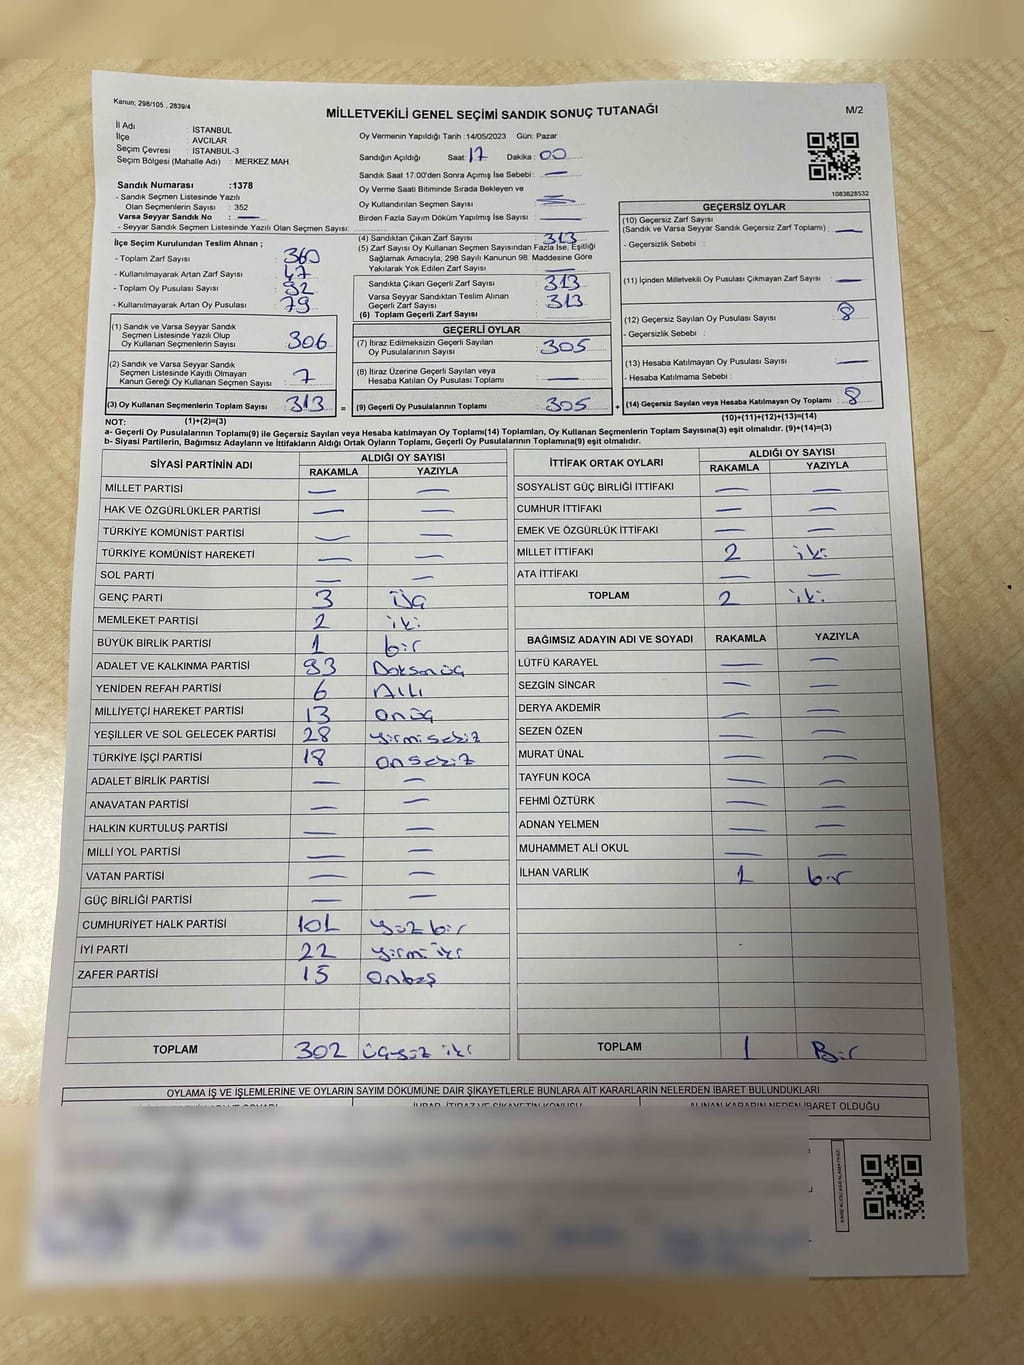 Kanun; 298/105 , 2839/4
MİLLETVEKİLİ GENEL SEÇİMİ SANDIK SONUÇ TUTANAĞI
M/2
İl Adı : İSTANBUL
İlçe : AVCILAR
Seçim Çevresi : İSTANBUL-3
Seçim Bölgesi (Mahalle Adı) : MERKEZ MAH.
Sandık Numarası :1378
- Sandık Seçmen Listesinde Yazılı
Olan Seçmenlerin Sayısı : 352
Varsa Seyyar Sandık No : —
- Seyyar Sandık Seçmen Listesinde Yazılı Olan Seçmen Sayısı:
İlçe Seçim Kurulundan Teslim Alınan ;
- Toplam Zarf Sayısı : 360
- Kullanılmayarak Artan Zarf Sayısı : 47
- Toplam Oy Pusulası Sayısı :
- Kullanılmayarak Artan Oy Pusulası : 79
(1) Sandık ve Varsa Seyyar Sandık
Seçmen Listesinde Yazılı Olup
Oy Kullanan Seçmenlerin Sayısı : 306
(2) Sandık ve Varsa Seyyar Sandık
Seçmen Listesinde Kayıtlı Olmayan
Kanun Gereği Oy Kullanan Seçmen Sayısı : 7
(3) Oy Kullanan Seçmenlerin Toplam Sayısı : 313
Oy Vermenin Yapıldığı Tarih :14/05/2023 Gün: Pazar
Sandığın Açıldığı Saat: 17 Dakika : 00
Sandık Saat 17:00'den Sonra Açımış İse Sebebi : —
Oy Verme Saati Bitiminde Sırada Bekleyen ve
Oy Kullandırılan Seçmen Sayısı : —
Birden Fazla Sayım Döküm Yapılmış İse Sayısı : —
(4) Sandıktan Çıkan Zarf Sayısı : 313
(5) Zarf Sayısı Oy Kullanan Seçmen Sayısından Fazla İse, Eşitliği
Sağlamak Amacıyla, 298 Sayılı Kanunun 98. Maddesine Göre
Yakılarak Yok Edilen Zarf Sayısı : —
Sandıkta Çıkan Geçerli Zarf Sayısı : 313
Varsa Seyyar Sandıktan Teslim Alınan
Geçerli Zarf Sayısı : 313
(6) Toplam Geçerli Zarf Sayısı :
GEÇERLİ OYLAR
(7) İtiraz Edilmeksizin Geçerli Sayılan
Oy Pusulalarının Sayısı : 305
(8) İtiraz Üzerine Geçerli Sayılan veya
Hesaba Katılan Oy Pusulası Toplamı : —
= (9) Geçerli Oy Pusulalarının Toplamı : 305
1083828532
GEÇERSİZ OYLAR
(10) Geçersiz Zarf Sayısı
(Sandık ve Varsa Seyyar Sandık Geçersiz Zarf Toplamı) : —
- Geçersizlik Sebebi :
(11) İçinden Milletvekili Oy Pusulası Çıkmayan Zarf Sayısı : —
(12) Geçersiz Sayılan Oy Pusulası Sayısı : 8
- Geçersizlik Sebebi :
(13) Hesaba Katılmayan Oy Pusulası Sayısı : —
- Hesaba Katılmama Sebebi :
+ (14) Geçersiz Sayılan veya Hesaba Katılmayan Oy Toplamı : 8
NOT: (1)+(2)=(3) (10)+(11)+(12)+(13)=(14)
a- Geçerli Oy Pusulalarının Toplamı(9) ile Geçersiz Sayılan veya Hesaba katılmayan Oy Toplamı(14) Toplamları, Oy Kullanan Seçmenlerin Toplam Sayısına(3) eşit olmalıdır. (9)+(14)=(3)
b- Siyasi Partilerin, Bağımsız Adayların ve İttifakların Aldığı Ortak Oyların Toplamı, Geçerli Oy Pusulalarının Toplamına(9) eşit olmalıdır.
SİYASİ PARTİNİN ADI ALDIĞI OY SAYISI
RAKAMLA YAZIYLA
MİLLET PARTİSİ — —
HAK VE ÖZGÜRLÜKLER PARTİSİ — —
TÜRKİYE KOMÜNİST PARTİSİ — —
TÜRKİYE KOMÜNİST HAREKETİ — —
SOL PARTİ — —
GENÇ PARTİ 3 Üç
MEMLEKET PARTİSİ 2 iki
BÜYÜK BİRLİK PARTİSİ 1 bir
ADALET VE KALKINMA PARTİSİ 93 Doksanüç
YENİDEN REFAH PARTİSİ 6 Altı
MİLLİYETÇİ HAREKET PARTİSİ 13 onüç
YEŞİLLER VE SOL GELECEK PARTİSİ 28 yirmisekiz
TÜRKİYE İŞÇİ PARTİSİ 18 onsekiz
ADALET BİRLİK PARTİSİ — —
ANAVATAN PARTİSİ — —
HALKIN KURTULUŞ PARTİSİ — —
MİLLİ YOL PARTİSİ — —
VATAN PARTİSİ — —
GÜÇ BİRLİĞİ PARTİSİ — —
CUMHURİYET HALK PARTİSİ 101 yüz bir
İYİ PARTİ 22 yirmi iki
ZAFER PARTİSİ 15 Onbeş
TOPLAM 302 üçyüz iki
İTTİFAK ORTAK OYLARI ALDIĞI OY SAYISI
RAKAMLA YAZIYLA
SOSYALİST GÜÇ BİRLİĞİ İTTİFAKI — —
CUMHUR İTTİFAKI — —
EMEK VE ÖZGÜRLÜK İTTİFAKI — —
MİLLET İTTİFAKI 2 iki
ATA İTTİFAKI — —
TOPLAM 2 iki
BAĞIMSIZ ADAYIN ADI VE SOYADI RAKAMLA YAZIYLA
LÜTFÜ KARAYEL — —
SEZGİN SİNCAR — —
DERYA AKDEMİR — —
SEZEN ÖZEN — —
MURAT ÜNAL — —
TAYFUN KOCA — —
FEHMİ ÖZTÜRK — —
ADNAN YELMEN — —
MUHAMMET ALİ OKUL — —
İLHAN VARLIK 1 bir
TOPLAM 1 Bir
OYLAMA İŞ VE İŞLEMLERİNE VE OYLARIN SAYIM DÖKÜMÜNE DAİR ŞİKAYETLERLE BUNLARA AİT KARARLARIN NELERDEN İBARET BULUNDUKLARI
İHBAR, İTİRAZ VE ŞİKAYETİN KONUSU ALINAN KARARIN NEDEN İBARET OLDUĞU